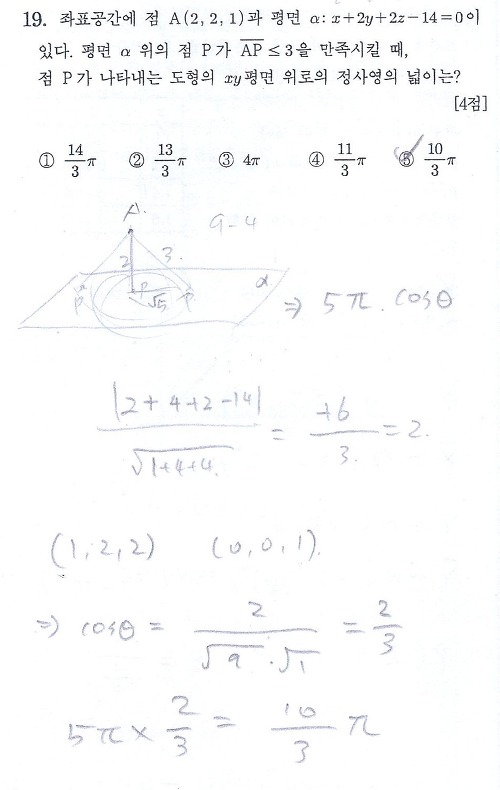 19. 좌표공간에 점 A(2, 2, 1)과 평면 α: x+2y+2z−14=0이
있다. 평면 α 위의 점 P가 AP≤3을 만족시킬 때,
점 P가 나타내는 도형의 xy평면 위로의 정사영의 넓이는?
[4점]
① 14/3 π ② 13/3 π ③ 4π ④ 11/3 π ⑤ 10/3 π
A.
9-4
2 3.
P P √5 P α
⇒ 5π. cosθ
|2+4+2-14| / √1+4+4 = +6 / 3. = 2.
(1, 2, 2) (0, 0, 1).
⇒ cosθ = 2 / √9 · √1 = 2/3
5π × 2/3 = 10/3 π